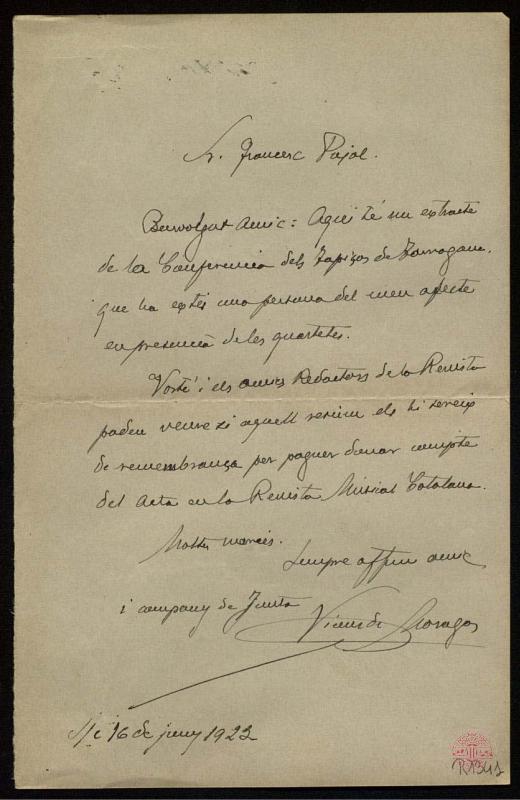 Sr. Francesc Pujol.
Benvolgut amic: Aquí té un extracte
de la Conferencia dels Tapiços de Tarragona,
que ha extés una persona del meu afecte
en presencia de les quartetes.
Vosté i els amics Redactors de la Revista
poden veure si aquell resúm els hi serveix
de remembrança per poguer donar compte
del acta en la Revista Musical Catalana.
Moltes mercés.
Sempre affm amic
i company de Junta
Vicens de Moragas
S/c 16 de juny 1922
R1341